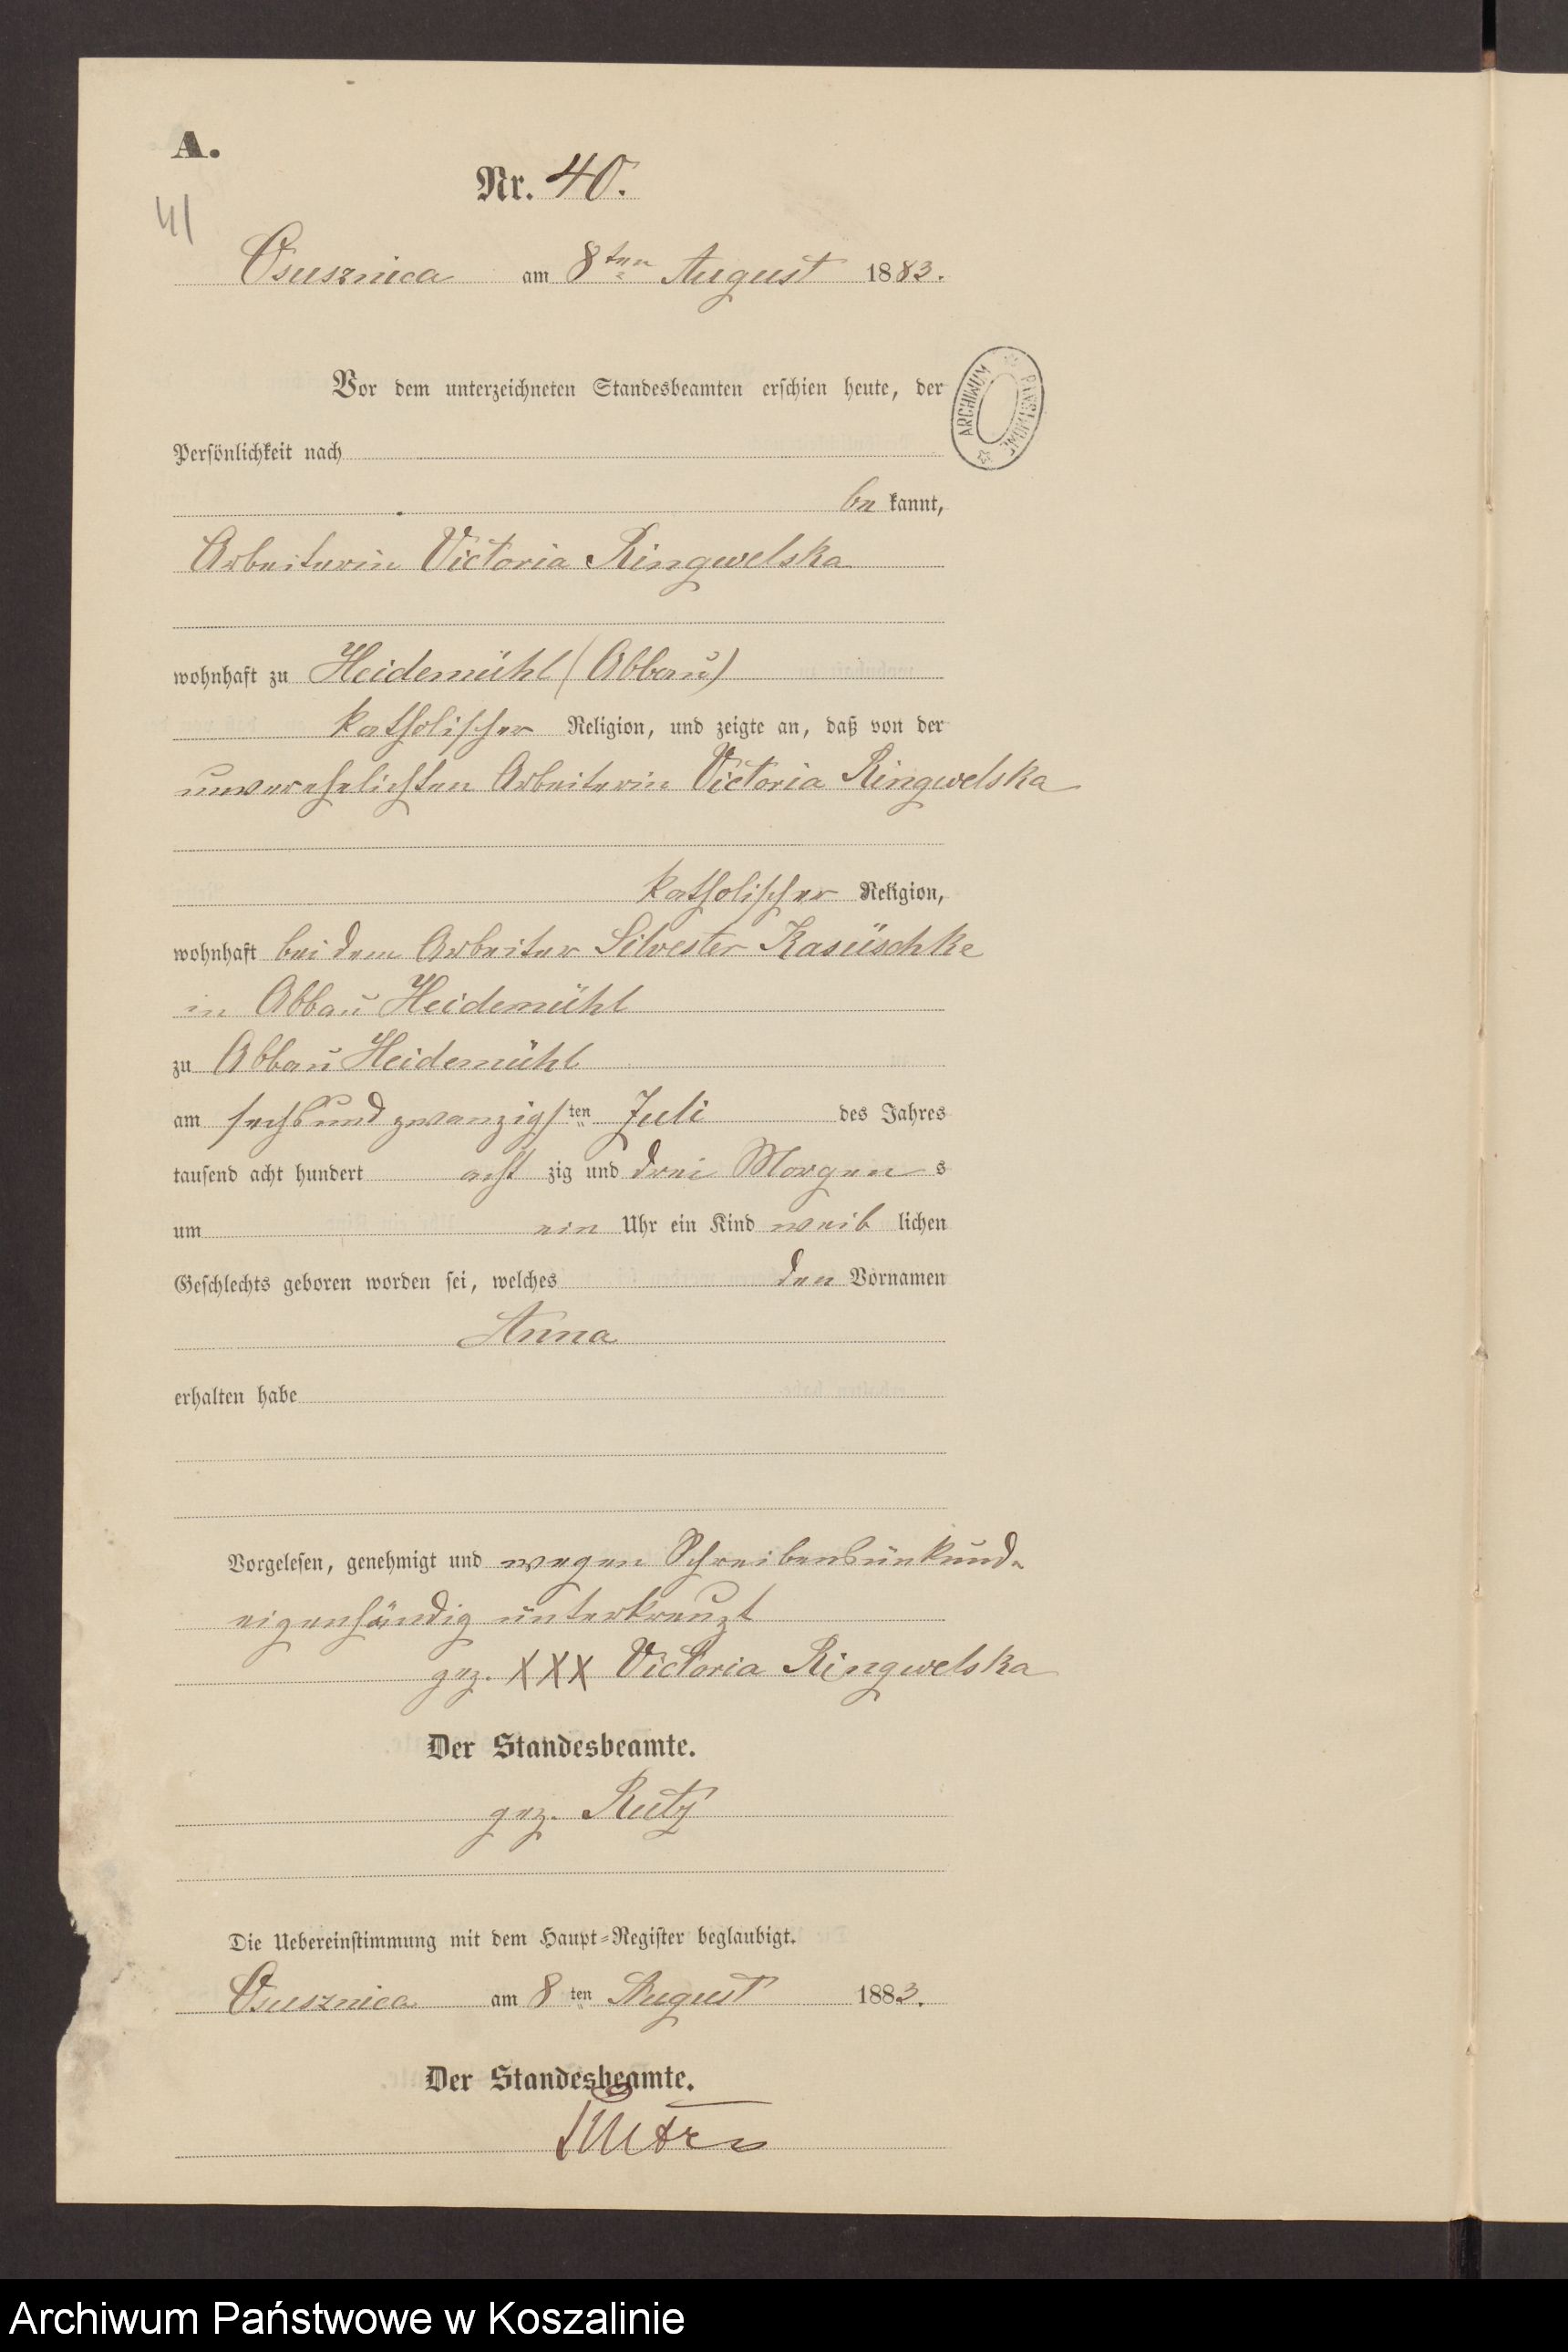 A.
Nr. 40.
41
Osusznica am 8ten August 1883.
Vor dem unterzeichneten Standesbeamten erschien heute, der
ARCHIWUM PAŃSTWOWE
Persönlichkeit nach
be kannt,
Arbeiterin Victoria Ringwelska
wohnhaft zu Heidemühl (Abbau)
katholischer Religion, und zeigte an, daß von der
unverehelichten Arbeiterin Victoria Ringwelska
katholischer Religion,
wohnhaft bei dem Arbeiter Silvester Kasüschke
in Abbau Heidemühl
zu Abbau Heidemühl
am sechsundzwanzigsten Juli des Jahres
tausend acht hundert acht zig und drei Morgens
um ein Uhr ein Kind weib lichen
Geschlechts geboren worden sei, welches den Vornamen
Anna
erhalten habe
Vorgelesen, genehmigt und wegen Schreibensunkunde
eigenhändig unterkreuzt
gez. XXX Victoria Ringwelska
Der Standesbeamte.
gez. Rutz
Die Uebereinstimmung mit dem Haupt-Register beglaubigt.
Osusznica am 8ten August 1883.
Der Standesbeamte.
Archiwum Państwowe w Koszalinie